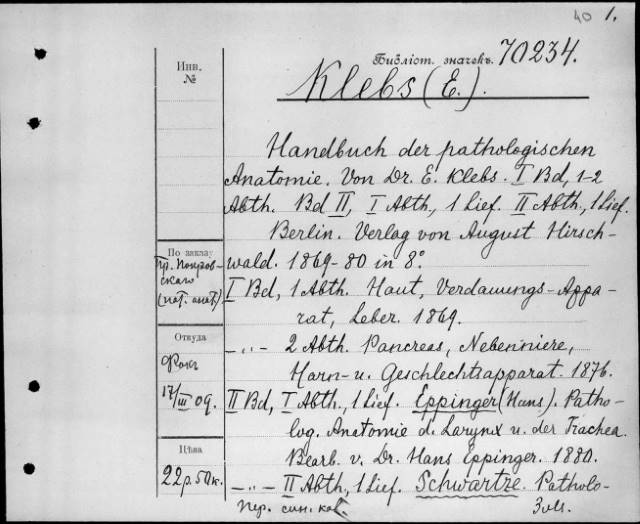 40 1.
Инв.
№
Библіот. значекъ. 70234.
Klebs (E.).
Handbuch der pathologischen
Anatomie. Von Dr. E. Klebs. I Bd, 1-2
Abth. Bd II, I Abth, 1 Lief. II Abth., 1 Lief.
Berlin. Verlag von August Hirsch-
wald. 1869-80 in 8°.
I Bd, 1 Abth. Haut, Verdauungs-Appa-
rat, Leber. 1869.
—„— 2 Abth. Pancreas, Nebenniere,
Harn- u. Geschlechtsapparat. 1876.
II Bd, I Abth., 1 Lief. Eppinger (Hans). Patho-
log. Anatomie d. Larynx u. der Trachea.
Bearb. v. Dr. Hans Eppinger. 1880.
—„— II Abth, 1 Lief. Schwartze. Patholo-
По заказу
Пр. Покров-
скаго
(пат. анат)
Откуда
Фокъ
17/III 09.
Цѣна
22р. 50к.
пер. сик. кат.